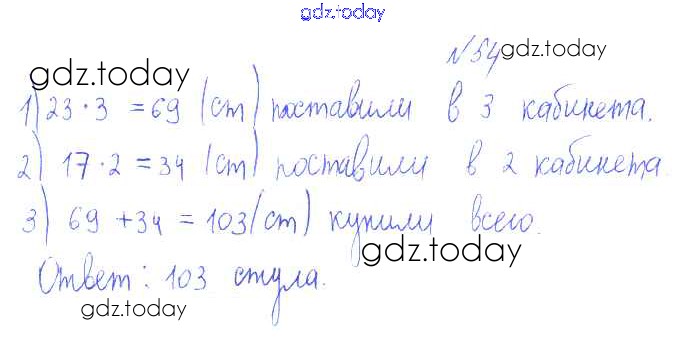 gdz.today
№54 gdz.today
gdz.today
1) 23·3 = 69 (ст) поставили в 3 кабинета.
2) 17·2 = 34 (ст) поставили в 2 кабинета
3) 69 + 34 = 103 (ст) купили всего.
gdz.today
Ответ: 103 стула.
gdz.today